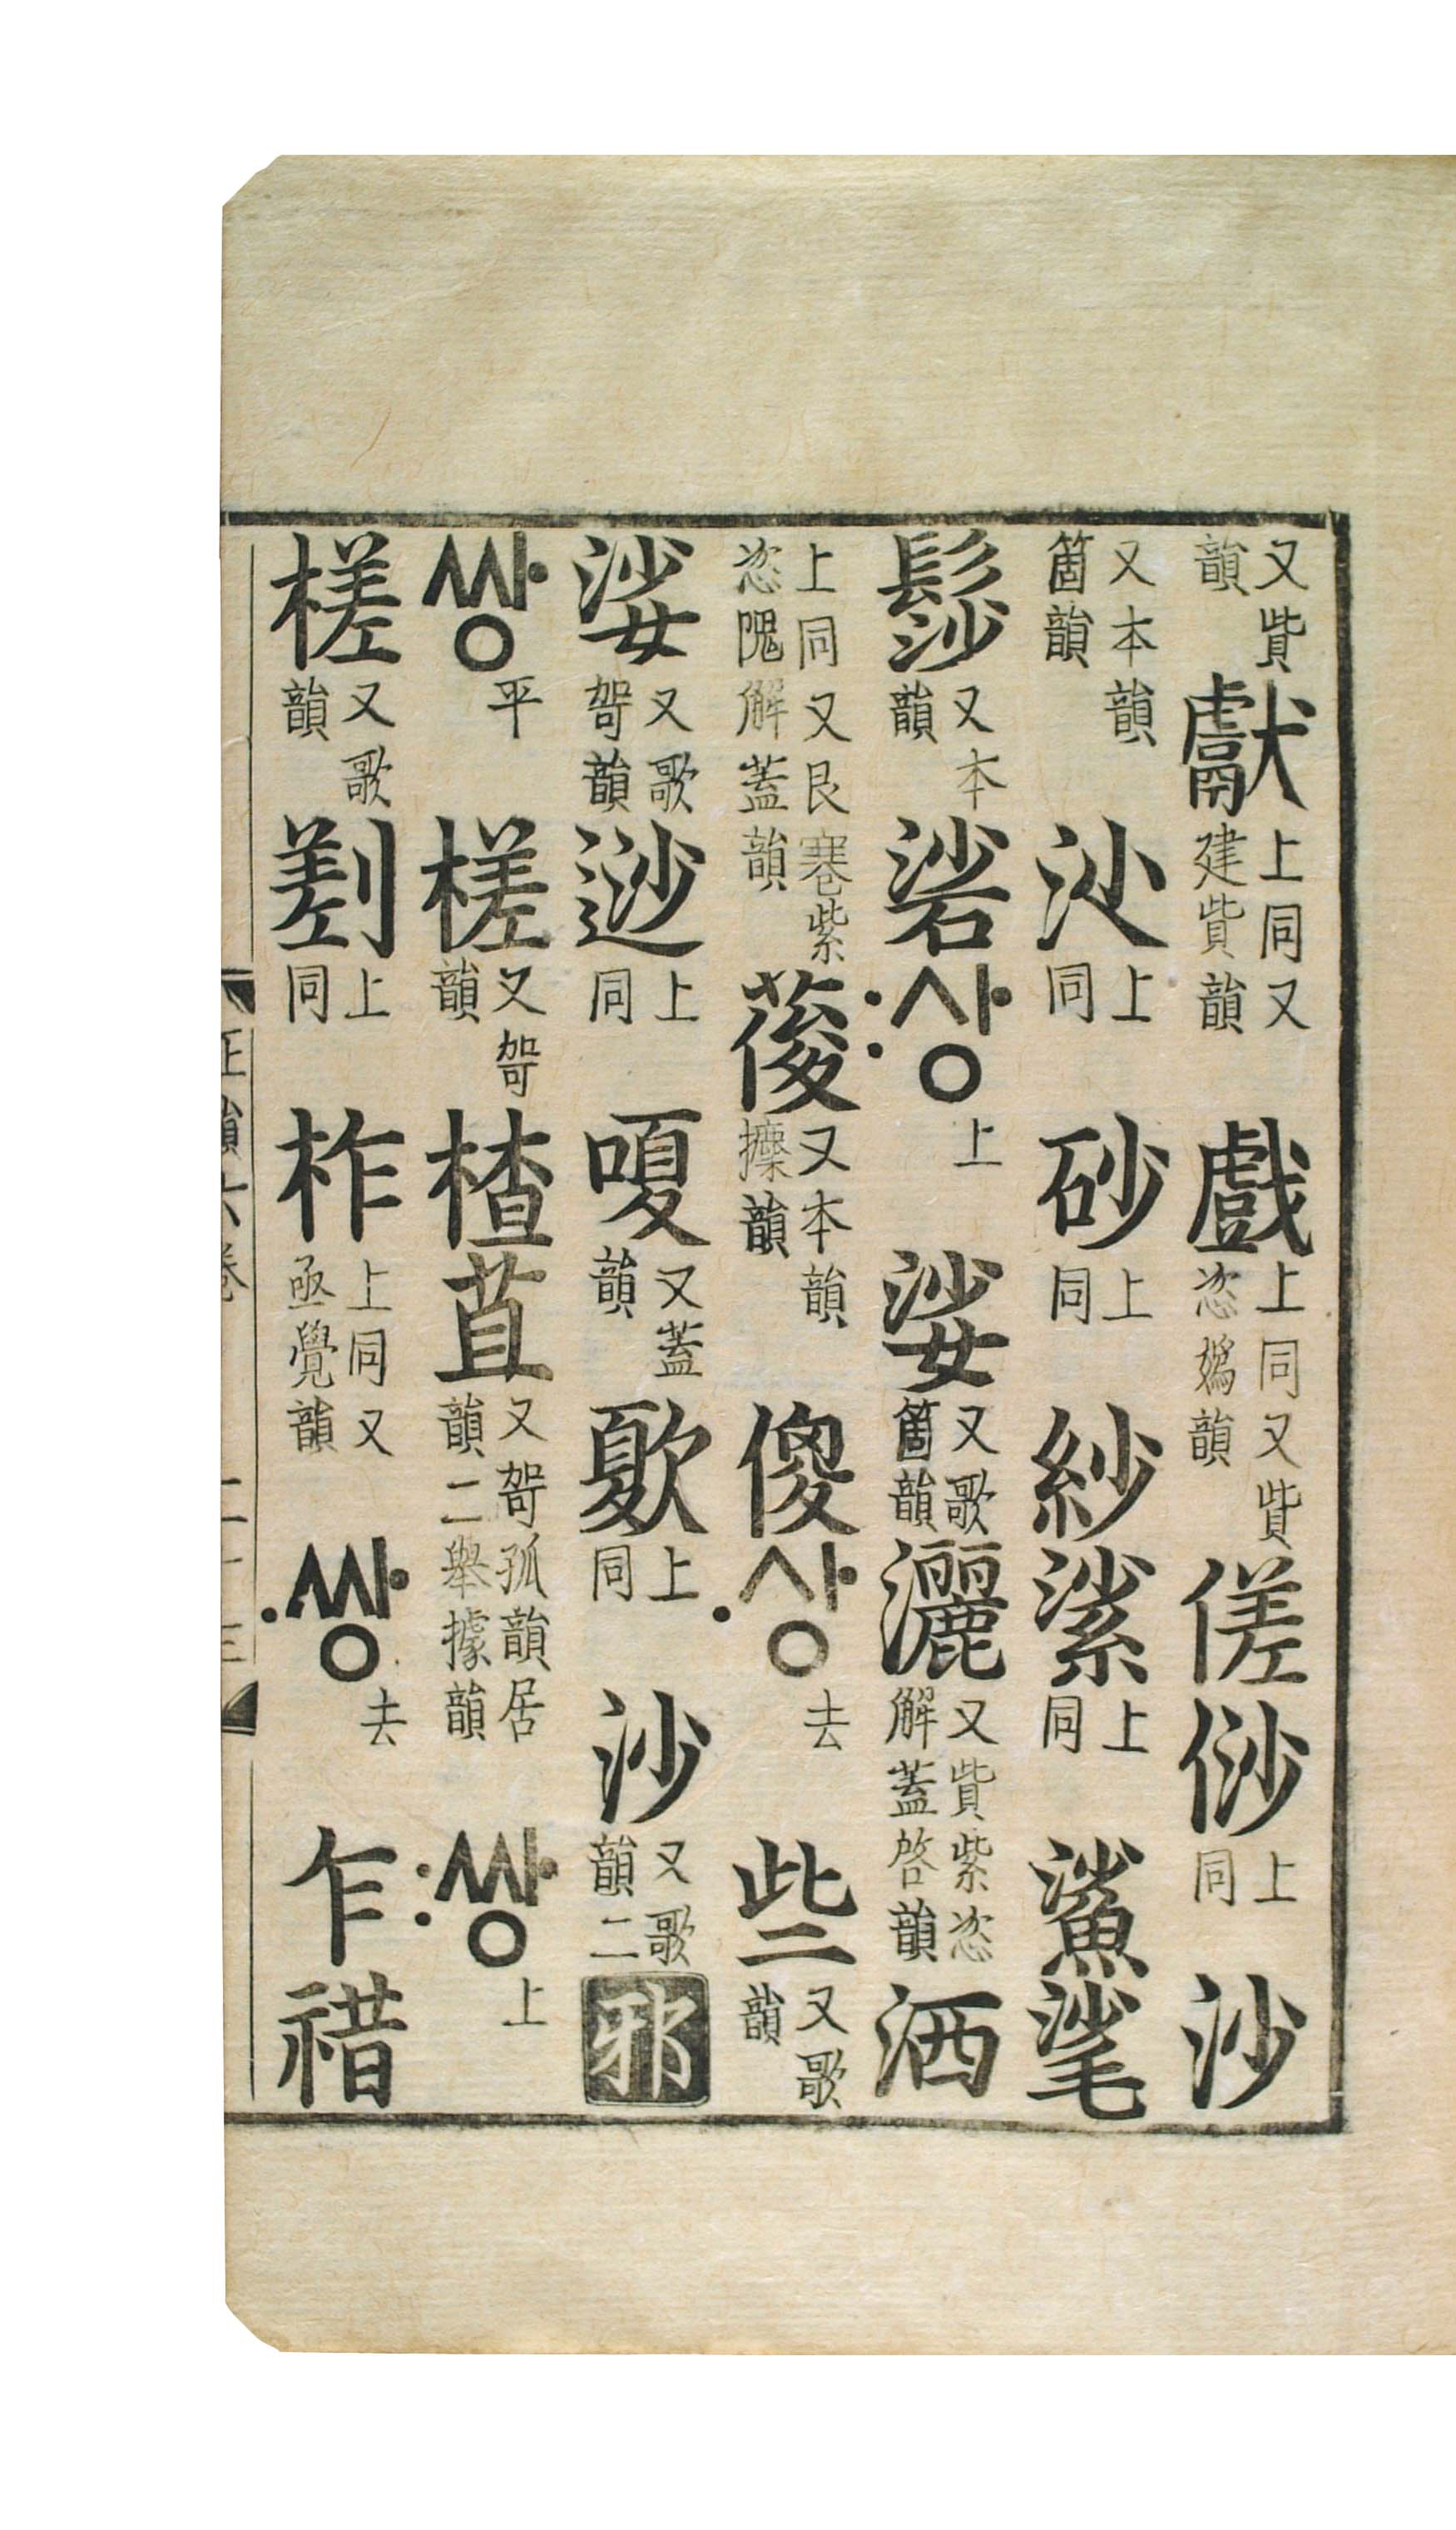 又貲韻獻上同又建貲韻戲上同又貲恣嬀韻傞㑣上同沙
又本韻箇韻沙上同砂上同紗䋾上同鯊髿
髿又本韻硰:상上娑又歌箇韻灑又貲紫恣解蓋啓韻洒
上同又艮寋紫恣隗解蓋韻葰又本韻韻傻·상去些又歌韻
娑又歌哿韻逤上同嗄又蓋韻㰺上同沙又歌韻二邪
쌍平槎又哿韻楂苴又哿孤韻居韻二舉據韻:쌍上
槎又歌韻剗上同柞上同又亟覺韻·쌍去乍䄍
正韻六卷 二十三